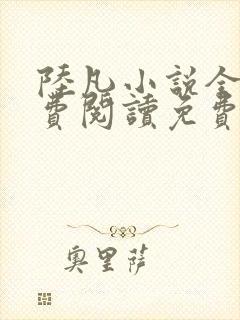 陸凡小説全
費閱讀免費
奧里薩